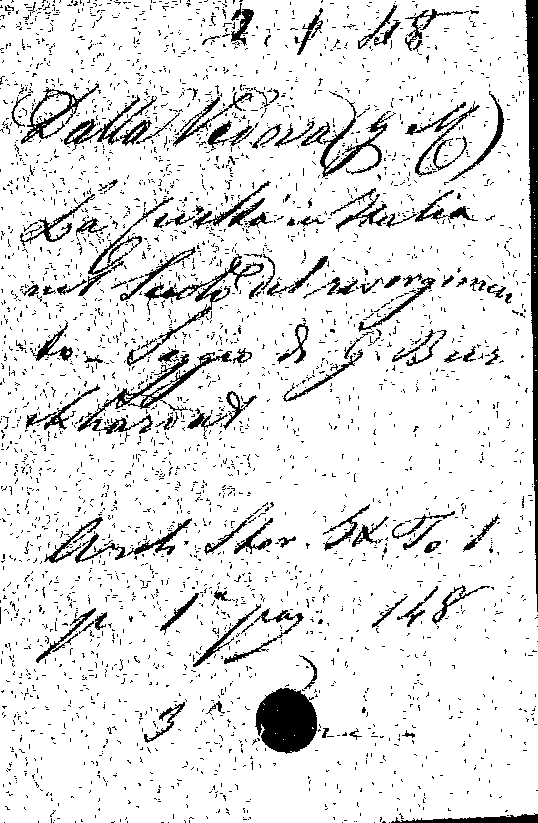 2. 1. 48
Dalla Vedova (G. M)
La Civiltà in Italia
nel Secolo del risorgimen
to - Saggio di G. Bur
ckhardt
Arch. Stor. To. 1.
p. 1ª pag. 148
3ª